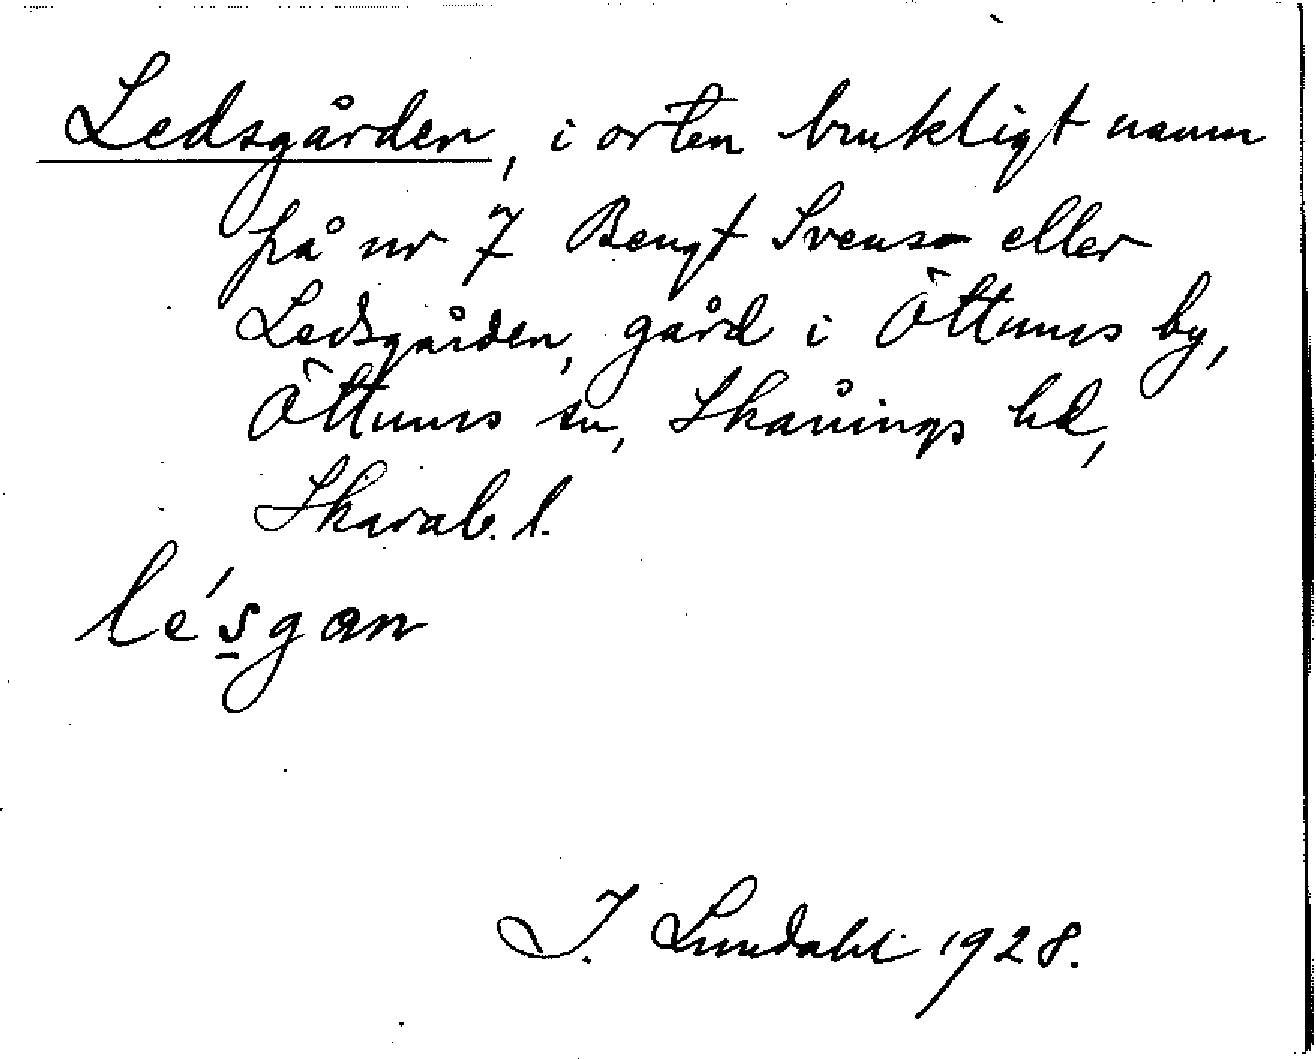 Ledsgården, i orten brukligt namn
på nr 7 Bengt Svens- eller
Ledsgården, gård i Öttums by,
Öttums sn, Skånings hd,
Skarab. l.
le´sgan
I. Lundahl 1928.